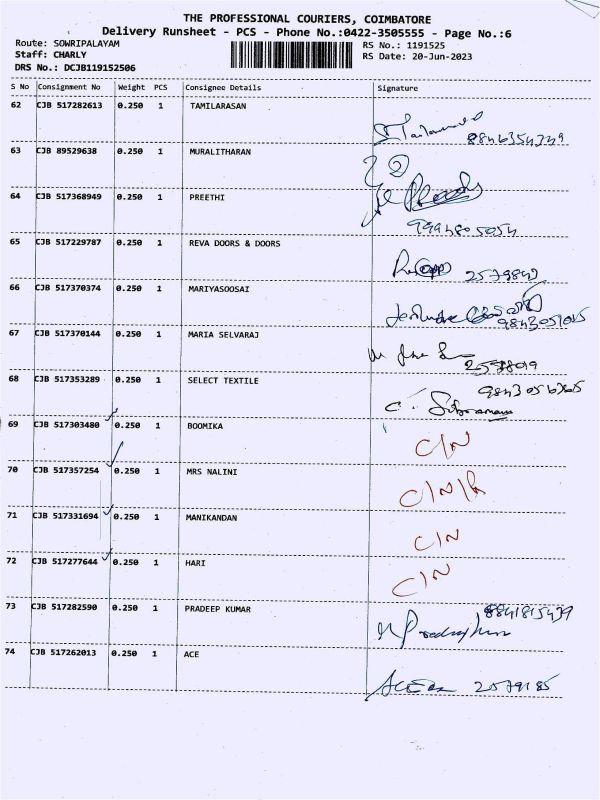 THE PROFESSIONAL COURIERS, COIMBATORE
Delivery Runsheet - PCS - Phone No.:0422-3505555 - Page No.:6
Route: SOWRIPALAYAM RS No.: 1191525
Staff: CHARLY RS Date: 20-Jun-2023
DRS No.: DCJB119152506
S No Consignment No Weight PCS Consignee Details Signature
62 CJB 517282613 0.250 1 TAMILARASAN
63 CJB 89529638 0.250 1 MURALITHARAN
64 CJB 517368949 0.250 1 PREETHI
65 CJB 517229787 0.250 1 REVA DOORS & DOORS
66 CJB 517370374 0.250 1 MARIYASOOSAI
67 CJB 517370144 0.250 1 MARIA SELVARAJ
68 CJB 517353289 0.250 1 SELECT TEXTILE
69 CJB 517303480 0.250 1 BOOMIKA C/N
70 CJB 517357254 0.250 1 MRS NALINI C/N/R
71 CJB 517331694 0.250 1 MANIKANDAN C/N
72 CJB 517277644 0.250 1 HARI C/N
73 CJB 517282590 0.250 1 PRADEEP KUMAR
74 CJB 517262013 0.250 1 ACE 2579185